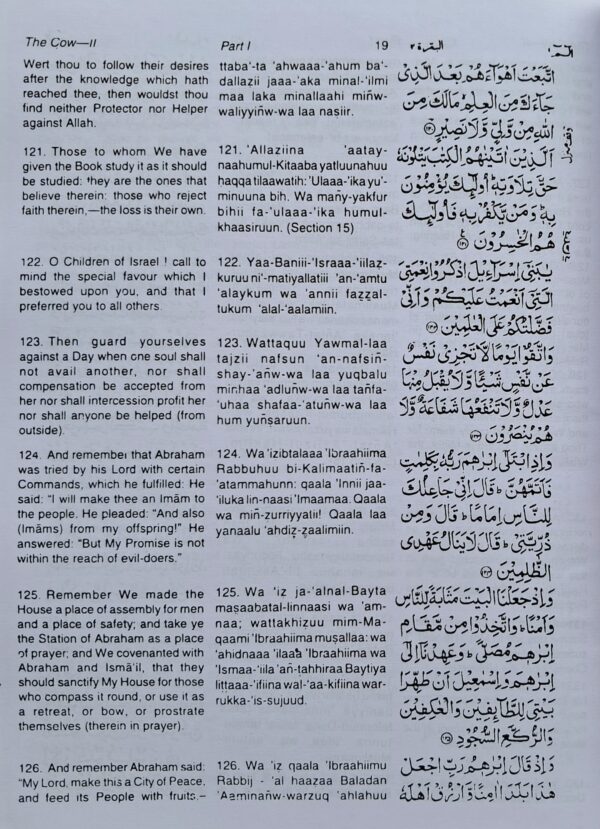 The Cow—II
Part I
19
البقرة ٢
الٓمٓ ١
Wert thou to follow their desires
after the knowledge which hath
reached thee, then wouldst thou
find neither Protector nor Helper
against Allah.
121. Those to whom We have
given the Book study it as it should
be studied: they are the ones that
believe therein: those who reject
faith therein,—the loss is their own.
122. O Children of Israel ! call to
mind the special favour which I
bestowed upon you, and that I
preferred you to all others.
123. Then guard yourselves
against a Day when one soul shall
not avail another, nor shall
compensation be accepted from
her nor shall intercession profit her
nor shall anyone be helped (from
outside).
124. And remember that Abraham
was tried by his Lord with certain
Commands, which he fulfilled: He
said: "I will make thee an Imām to
the people. He pleaded: "And also
(Imāms) from my offspring!" He
answered: "But My Promise is not
within the reach of evil-doers."
125. Remember We made the
House a place of assembly for men
and a place of safety; and take ye
the Station of Abraham as a place
of prayer; and We covenanted with
Abraham and Ismā'īl, that they
should sanctify My House for those
who compass it round, or use it as
a retreat, or bow, or prostrate
themselves (therein in prayer).
126. And remember Abraham said:
"My Lord, make this a City of Peace,
and feed its People with fruits,–
ttaba'-ta 'ahwaaa-'ahum ba'-
dallazii jaaa-'aka minal-'ilmi
maa laka minallaahi miñw-
waliyyiñw-wa laa naṣiir.
121. 'Allaziina 'aatay-
naahumul-Kitaaba yatluunahuu
ḥaqqa tilaawatih: 'Ulaaa-'ika yu'-
minuuna bih. Wa mañy-yakfur
bihii fa-'ulaaa-'ika humul-
khaasiruun. (Section 15)
122. Yaa-Baniii-'Israaa-'iilaẓ-
kuruu ni'-matiyallatiii 'an-'amtu
'alaykum wa 'annii faẓẓal-
tukum 'alal-'aalamiin.
123. Wattaquu Yawmal-laa
tajzii nafsun 'an-nafsiñ-
shay-'añw-wa laa yuqbalu
minhaa 'adluñw-wa laa tañfa-
'uhaa shafaa-'atuñw-wa laa
hum yuñṣaruun.
124. Wa 'izibtalaaa 'Ibraahiima
Rabbuhuu bi-Kalimaatiñ-fa-
'atammahunn: qaala 'Innii jaa-
'iluka lin-naasi 'Imaamaa. Qaala
wa miñ-zurriyyatii! Qaala laa
yanaalu 'ahdiẓ-ẓaalimiin.
125. Wa 'iẓ ja-'alnal-Bayta
maṣaabatal-linnaasi wa 'am-
naa; wattakhizuu mim-Ma-
qaami 'Ibraahiima muṣallaa: wa
'ahidnaaa 'ilaaa 'Ibraahiima wa
'Ismaa-'iila 'añ-tahhiraa Baytiya
liṭṭaaa-'ifiina wal-'aa-kifiina war-
rukka-'is-sujuud.
126. Wa 'iẓ qaala 'Ibraahiimu
Rabbij - 'al haaẓaa Baladan
'Aaminañw-warzuq 'ahlahuu
اتَّبَعْتَ اَهْوَآءَهُمْ بَعْدَ الَّذِىْ
جَآءَكَ مِنَ الْعِلْمِ مَالَكَ مِنَ
اللّٰهِ مِنْ وَّلِىٍّ وَّلَا نَصِيْرٍ ۝
اَلَّذِيْنَ اٰتَيْنٰهُمُ الْكِتٰبَ يَتْلُوْنَهٗ
حَقَّ تِلَاوَتِهٖ اُولٰٓئِكَ يُؤْمِنُوْنَ
بِهٖ وَمَنْ يَّكْفُرْ بِهٖ فَاُولٰٓئِكَ
هُمُ الْخٰسِرُوْنَ ۝
يٰبَنِىْٓ اِسْرَآءِيْلَ اذْكُرُوْا نِعْمَتِىَ
الَّتِىْٓ اَنْعَمْتُ عَلَيْكُمْ وَاَنِّىْ
فَضَّلْتُكُمْ عَلَى الْعٰلَمِيْنَ ۝
وَاتَّقُوْا يَوْمًا لَّا تَجْزِىْ نَفْسٌ
عَنْ نَّفْسٍ شَيْئًا وَّلَا يُقْبَلُ مِنْهَا
عَدْلٌ وَّلَا تَنْفَعُهَا شَفَاعَةٌ وَّلَا
هُمْ يُنْصَرُوْنَ ۝
وَاِذِ ابْتَلٰٓى اِبْرٰهٖمَ رَبُّهٗ بِكَلِمٰتٍ
فَاَتَمَّهُنَّ ؕ قَالَ اِنِّىْ جَاعِلُكَ
لِلنَّاسِ اِمَامًا ؕ قَالَ وَمِنْ
ذُرِّيَّتِىْ ؕ قَالَ لَا يَنَالُ عَهْدِى
الظّٰلِمِيْنَ ۝
وَاِذْ جَعَلْنَا الْبَيْتَ مَثَابَةً لِّلنَّاسِ
وَاَمْنًا ؕ وَاتَّخِذُوْا مِنْ مَّقَامِ
اِبْرٰهٖمَ مُصَلًّى ؕ وَعَهِدْنَآ اِلٰٓى
اِبْرٰهٖمَ وَاِسْمٰعِيْلَ اَنْ طَهِّرَا
بَيْتِىَ لِلطَّآئِفِيْنَ وَالْعٰكِفِيْنَ
وَالرُّكَّعِ السُّجُوْدِ ۝
وَاِذْ قَالَ اِبْرٰهٖمُ رَبِّ اجْعَلْ
هٰذَا بَلَدًا اٰمِنًا وَّارْزُقْ اَهْلَهٗ